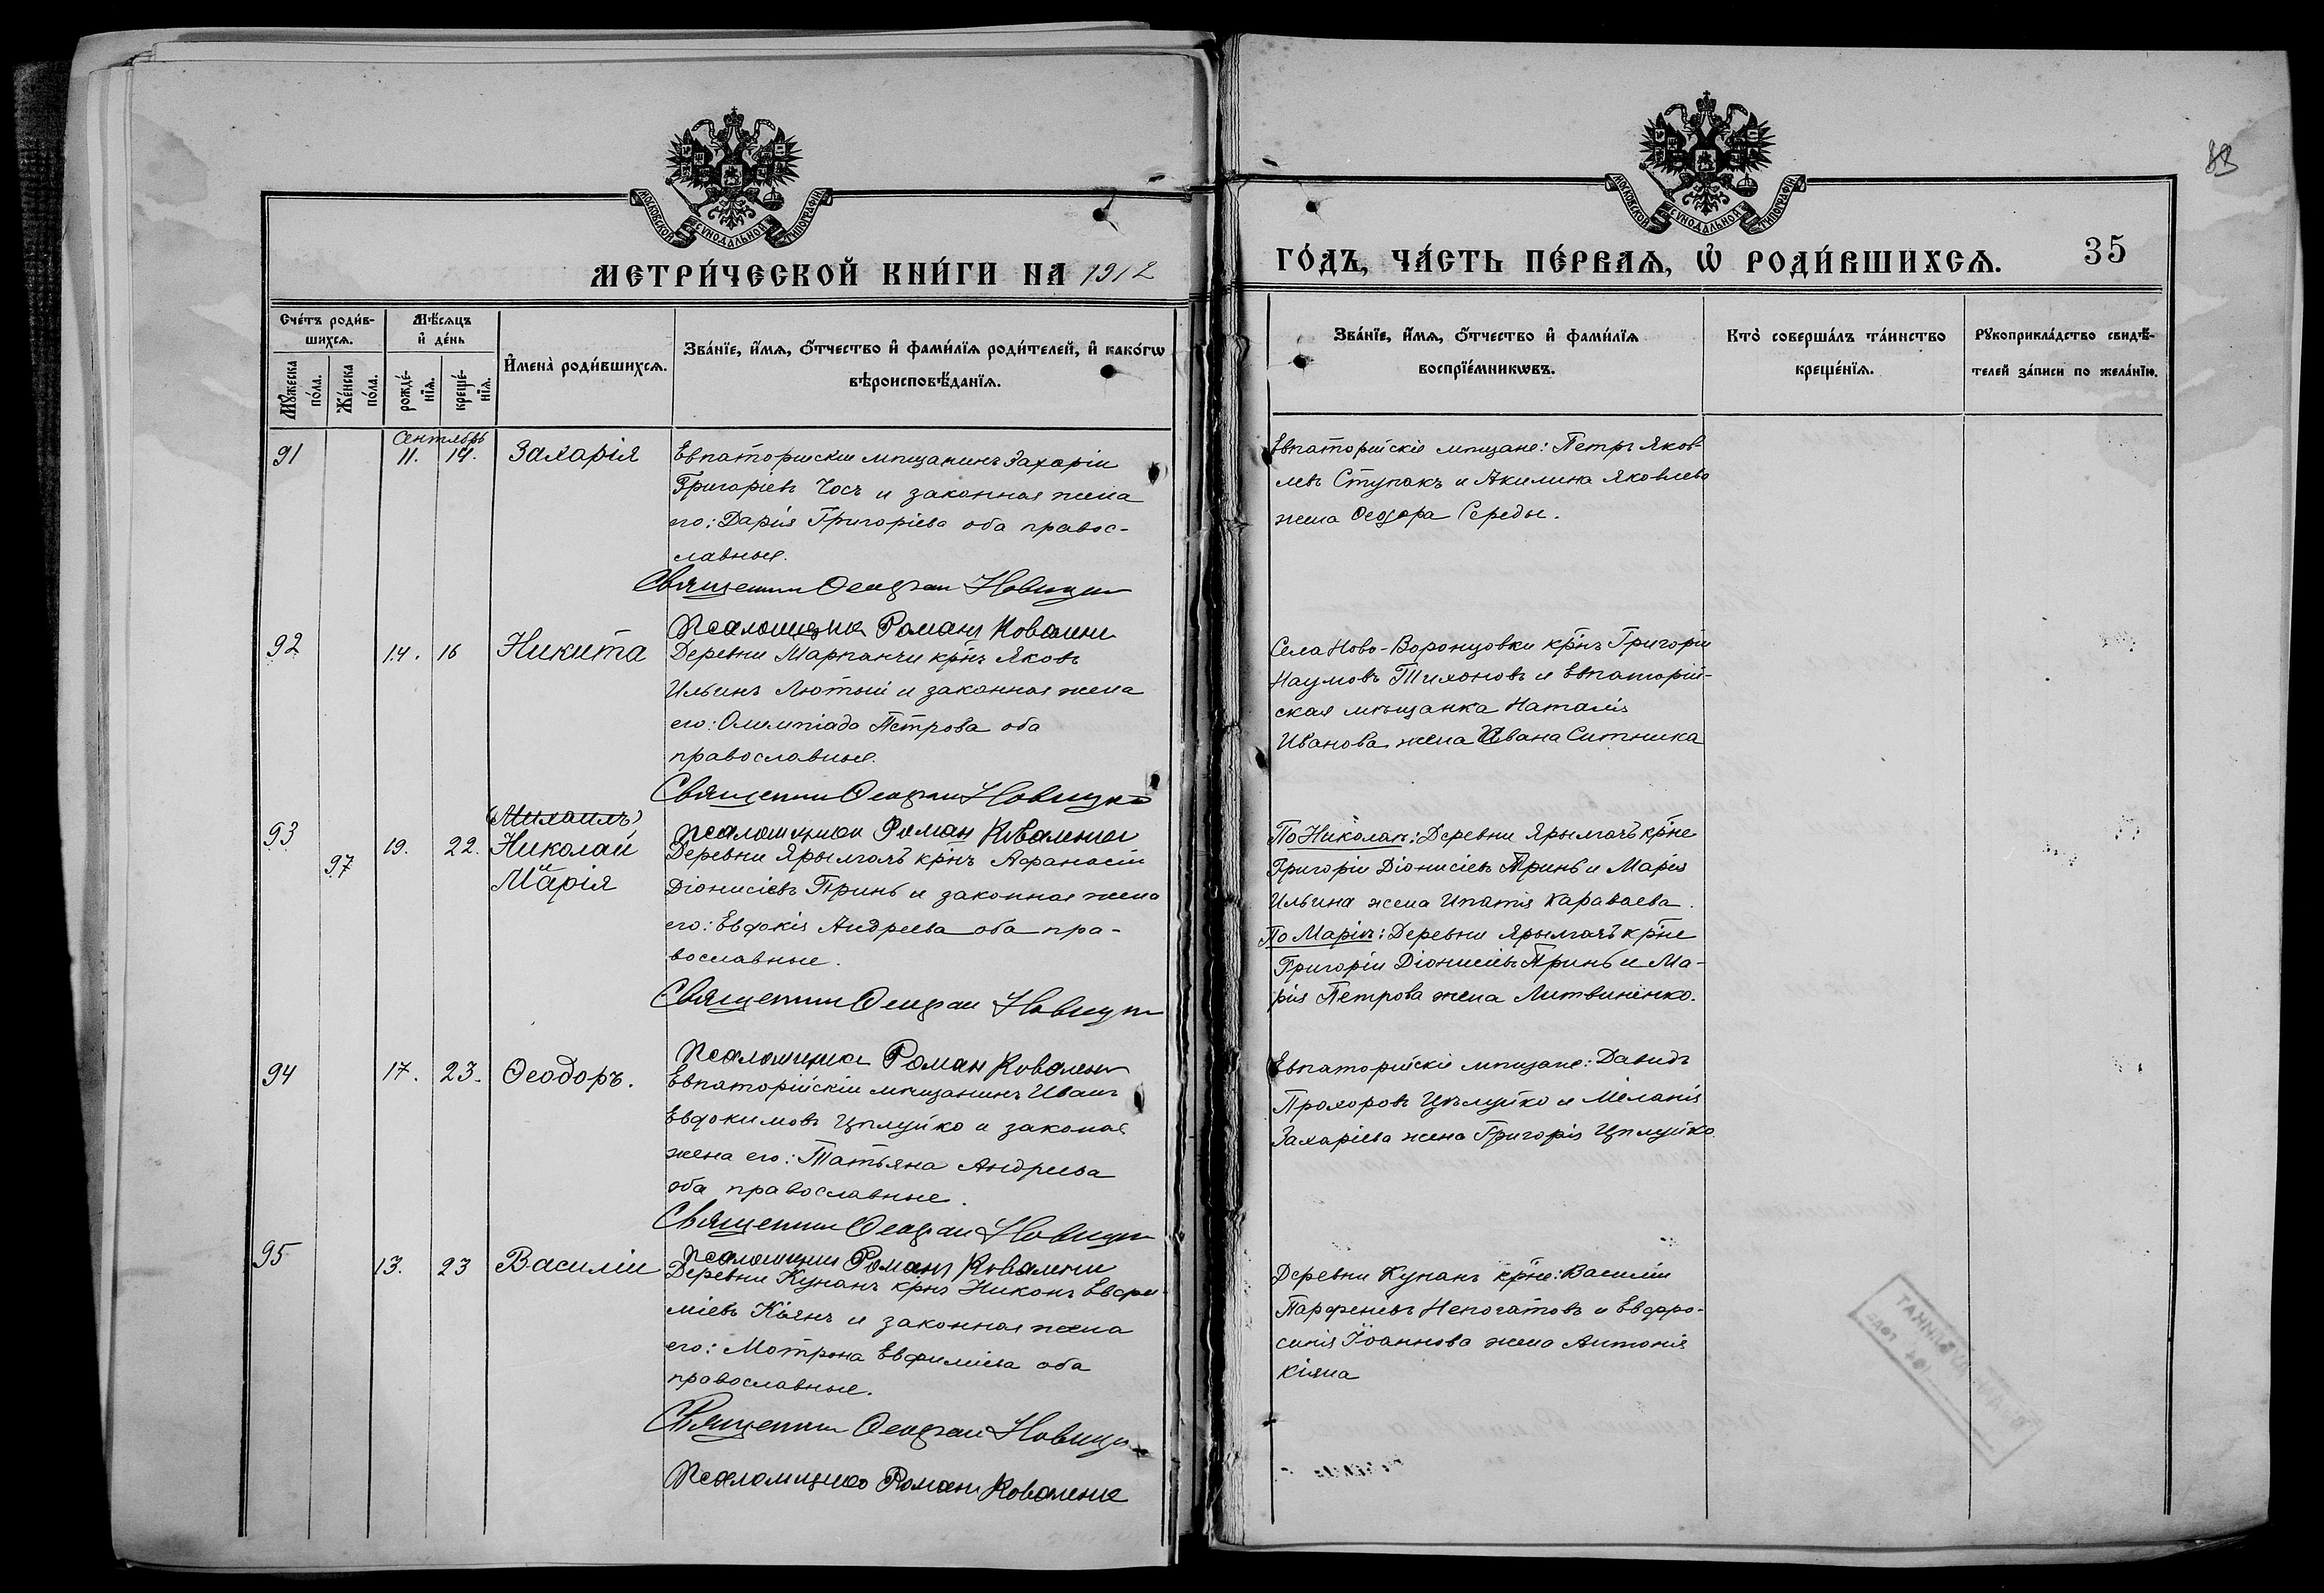 МОСКОВСКОЙ СѴНОДАЛЬНОЙ ТИПОГРАФІИ
МЕТРИ́ЧЕСКОЙ КНИ́ГИ НА 1912
Сче́тъ роди́в-
шихсѧ.
Мꙋ́жеска по́ла.
Же́нска по́ла.
Мѣ́сѧцъ и҆ де́нь
рожде́-нїѧ.
креще́-нїѧ.
И҆мена̀ роди́вшихсѧ.
Зва́нїе, и҆́мѧ, ѻ҆́тчество и҆ фами́лїѧ роди́телей, и҆ како́гѡ
вѣроисповѣ́данїѧ.
Сентябрь
91 11. 14. Захарія
Евпаторійскій мѣщанинъ Захарій
Григорьевъ Чосъ и законная жена
его: Дарія Григоріева оба правос-
лавные.
Священник Ѳеофан Новицкий
Псаломщик Роман Коваленко
92 14. 16 Никита
Деревни Марпанчи крнъ Яковъ
Ильинъ Лютый и законная жена
его: Олимпіада Петрова оба
православные.
Священник Ѳеофан Новицкий
Псаломщик Роман Коваленко
93 97 19. 22. (Михаилъ)
Николай
и
Марія
Деревни Ярылгачъ крнъ Афанасій
Діонисіевъ Принь и законная жена
его: Евдокія Андреева оба пра-
вославные.
Священник Ѳеофан Новицкий
Псаломщик Роман Коваленко
94 17. 23. Ѳеодоръ.
Евпаторійскій мѣщанинъ Иванъ
Евдокимовъ Цѣлуйко и законая
жена его: Татьяна Андреева
оба православные.
Священник Ѳеофан Новицкий
Псаломщик Роман Коваленко
95 13. 23 Василій
Деревни Кунанъ крнъ Никонъ Евфи-
міевъ Кіянъ и законная жена
его: Мотрона Евфиміева оба
православные.
Священник Ѳеофан Новицкий
Псаломщик Роман Коваленко
МОСКОВСКОЙ СѴНОДАЛЬНОЙ ТИПОГРАФІИ
ГО́ДЪ, ЧА́СТЬ ПЕ́РВАѦ, Ѡ҆ РОДИ́ВШИХСѦ.
35
Зва́нїе, и҆́мѧ, ѻ҆́тчество и҆ фами́лїѧ
воспрїе́мникѡвъ.
Кто̀ соверша́лъ та́инство
креще́нїѧ.
Рꙋкоприкла́дство свидѣ́-
телей за́писи по жела́нїю.
Евпаторійскіе мѣщане: Петръ Яков-
левъ Ступакъ и Акилина Яковлева
жена Ѳеодора Середы.
Села Ново-Воронцовки крнъ Григорій
Наумовъ Тихоновъ и Евпаторій-
ская мѣщанка Наталія
Иванова жена Ивана Ситника
По Николаѣ: Деревни Ярылгачъ крне
Григорій Діонисіевъ Принь и Марія
Ильина жена Ипатія Караваева.
По Маріѣ: Деревни Ярылгачъ крне
Григорій Діонисіевъ Принь и Ма-
рія Петрова жена Литвиненко.
Евпаторійскіе мѣщане: Давидъ
Прохоровъ Цѣлуйко и Меланія
Захаріева жена Григорія Цѣлуйко.
Деревни Кунанъ крне: Василій
Парфеніевъ Непочатовъ и Евфро-
синія Іоаннова жена Антонія
Кіяна